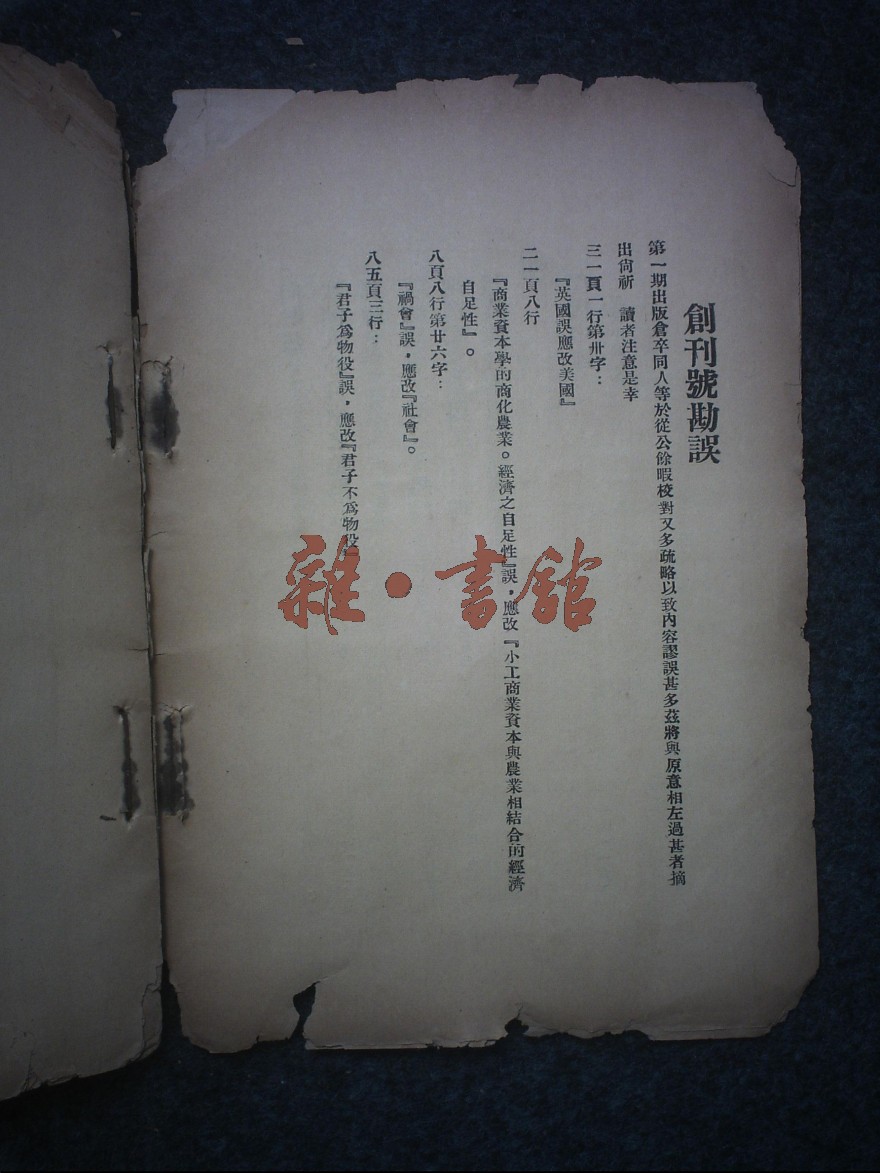 創刊號勘誤
第一期出版倉卒同人等於從公餘暇校對又多疏略以致內容謬誤甚多茲將與原意相左過甚者摘
出尙祈　讀者注意是幸
三一頁一行第卅字：
『英國誤應改美國』
二一頁八行
『商業資本學的商化農業。經濟之自足性』誤，應改『小工商業資本與農業相結合的經濟
自足性』。
八頁八行第廿六字：
『禍會』誤，應改『社會』。
八五頁三行：
『君子爲物役』誤，應改『君子不爲物役』
雜·書館